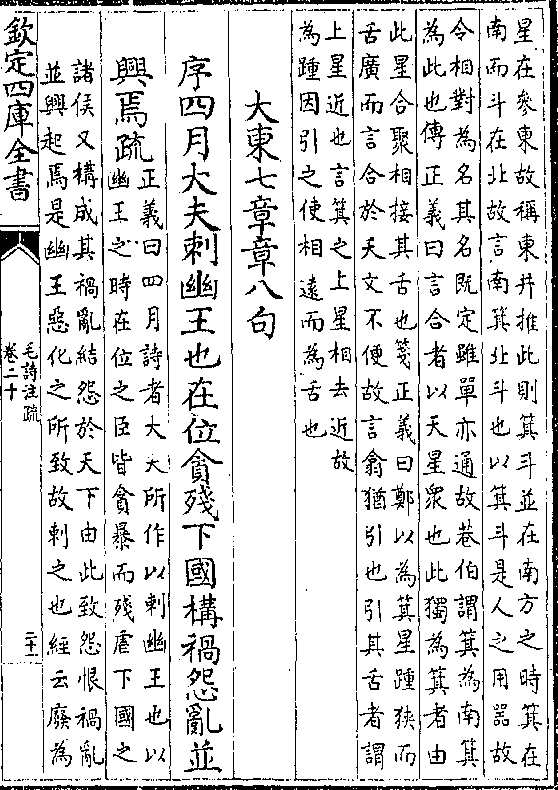 星在參東故稱東井推此則箕斗並在南方之時箕在
南而斗在北故言南箕北斗也以箕斗是人之用器故
令相對為名其名既定雖單亦通故巷伯謂箕為南箕
為此也傳正義曰言合者以天星衆也此獨為箕者由
此星合聚相接其舌也箋正義曰鄭以為箕星踵狹而
舌廣而言合於天文不便故言翕猶引也引其舌者謂
上星近也言箕之上星相去近故
為踵因引之使相遠而為舌也
大東七章章八句
序四月大夫刺幽王也在位貪殘下國構禍怨亂並
興焉疏
正義曰四月詩者大夫所作以刺幽王也以
幽王之時在位之臣皆貪暴而殘虐下國之
諸侯又構成其禍亂結怨於天下由此致怨恨禍亂
並興起焉是幽王惡化之所致故刺之也經云廢為
欽定四庫全書
毛詩注疏
卷二十
二十一